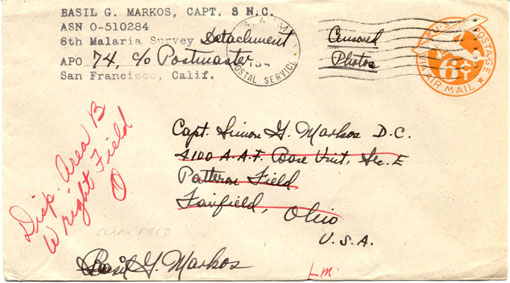 BASIL G. MARKOS, CAPT. S N.C.
ASN O-510284
6th Malaria Survey Detachment
APO 74, c/o Postmaster
San Francisco, Calif.
U.S. ARMY
POSTAL SERVICE
Censored
Photos
U.S. POSTAGE
6¢
VIA AIR MAIL
Capt. Simon G. Markos D.C.
4100 A.A.F. Base Unit, Sec. E
Patterson Field
Fairfield, Ohio
U.S.A.
Disp. Area B
Wright Field
CLARK FIELD
Basil G. Markos
Lm.